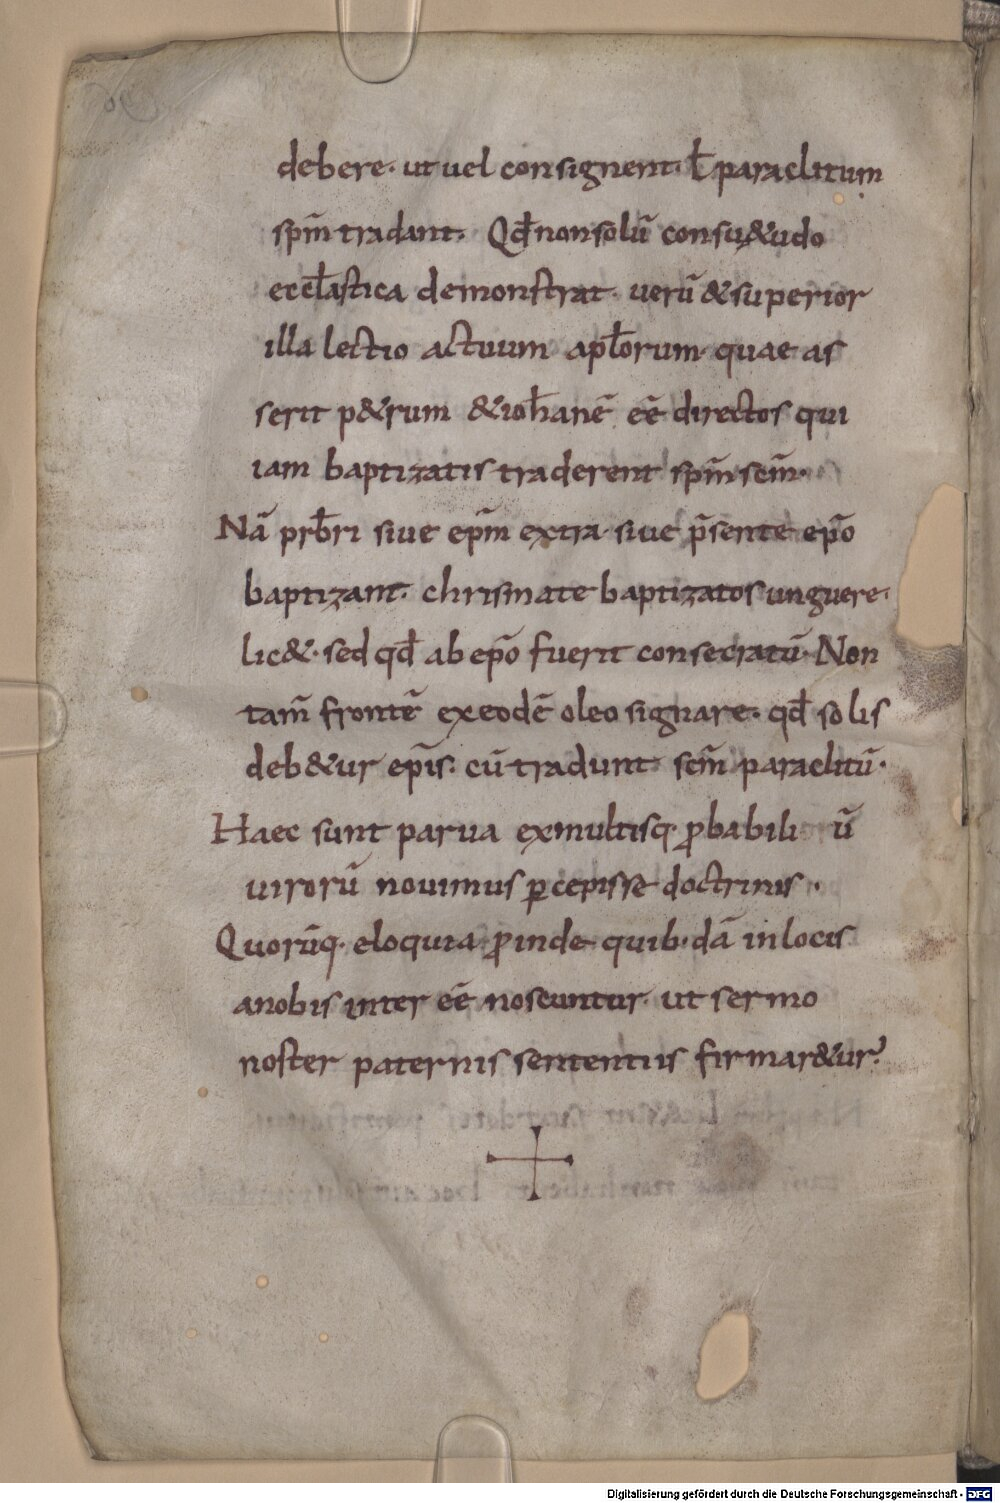 debere· ut uel consignent· ł paraclitum
spm̄ tradant· Qđ non solū consu&udo
eccłastica demonstrat· uerū & superior
illa lectio actuum apłorum· quae as
serit p&rum & ioħanē eē directos qui
iam baptizatis traderent spm̄ scm̄·
Nā prƀri siue epm̄ extra· siue p̄sente ep̄o
baptizant· chrismate baptizatos unguere·
lic&· sed qđ ab ep̄o fuerit consecratū· Non
tam̄ frontē ex eodē oleo signare· qđ solis
deb&ur ep̄is· cū tradunt scm̄ paraclitū·
Haec sunt parua ex multisq· ꝓbabiliorū
uirorū nouimus ꝑcepisse doctrinis·
Quorūq· eloquia ꝓinde quib·dā in locis
a nobis inter eē noscuntur· ut sermo
noster paternis sententiis firmar&ur·
Digitalisierung gefördert durch die Deutsche Forschungsgemeinschaft - DFG